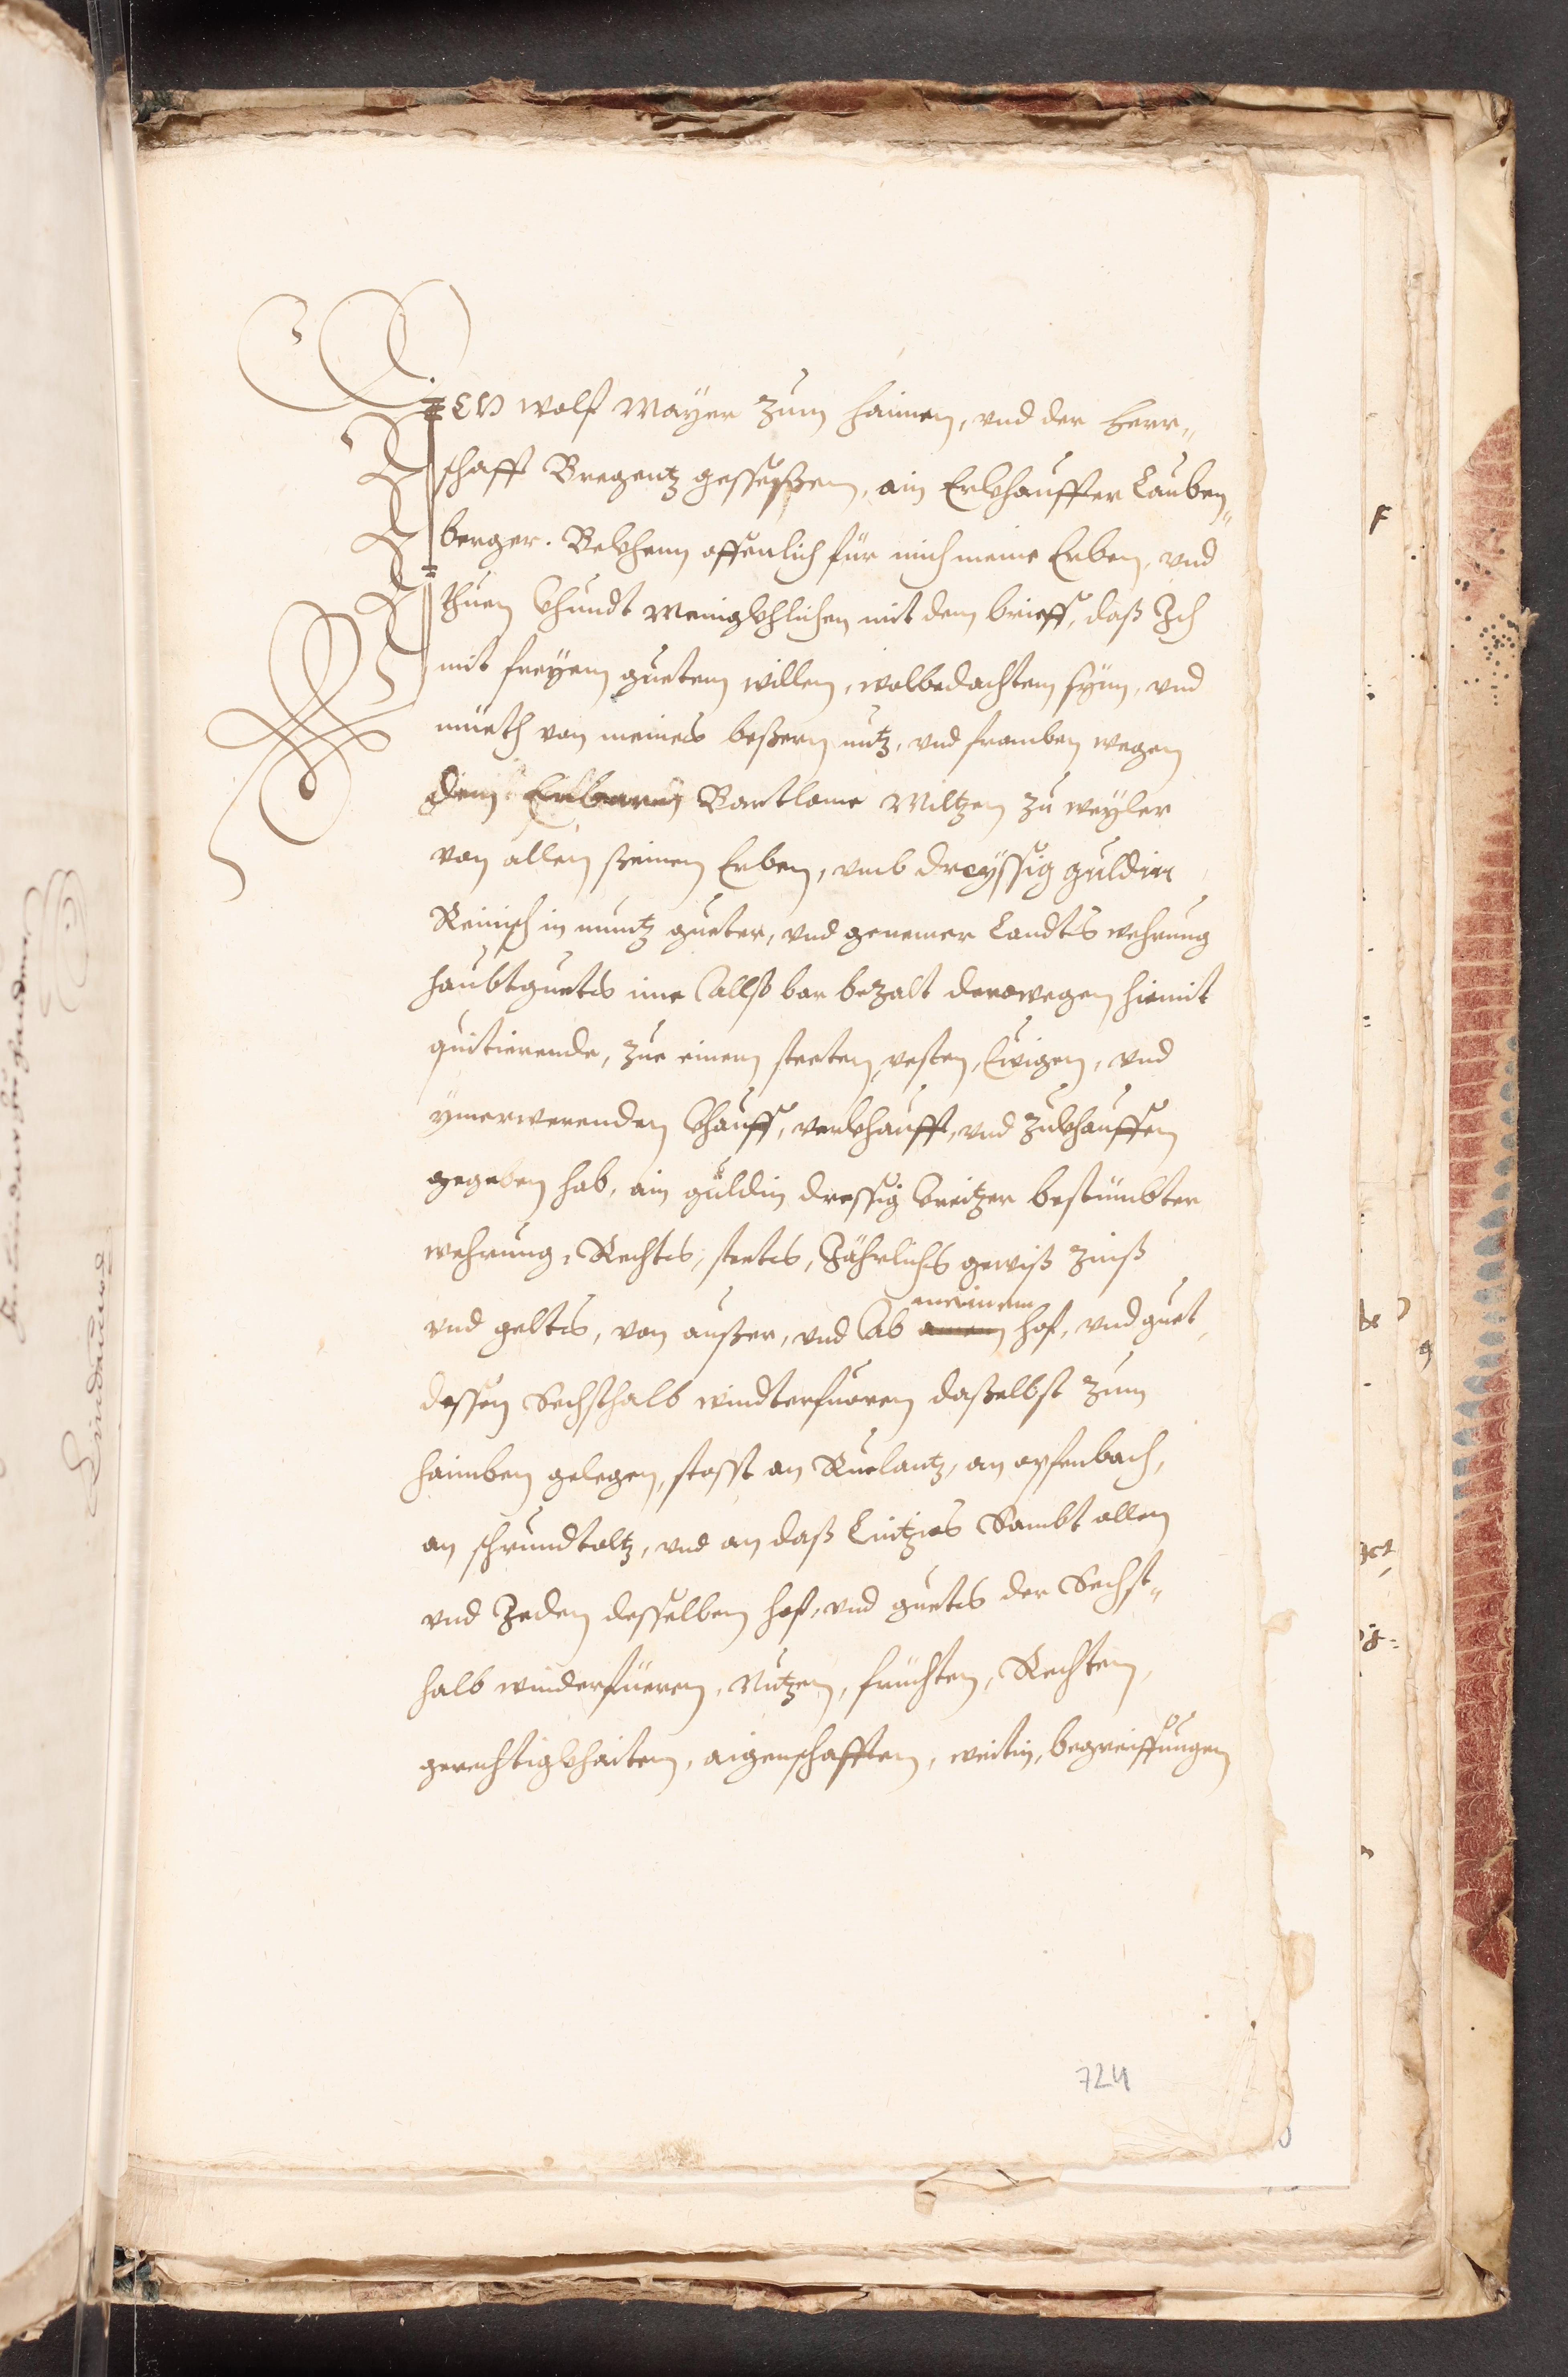 ICH wolf Mayer zum haimen, vnd der herr„
schafft Bregentz gesseßen, ain Erbkhauffter Lauben„
berger. Bekhenn offenlich für mich meine Erben, vnd
thuen khundt Menigkhlichen mit dem brieff, daß Ich
mit freyem guetem willen, wolbedachtem synn, vnd
mueth von meines beßern nutz, vnd fromben wegen
dem Erbaren Bartlome Miltzen zu weyler
von allen seinen Erben, vmb dreyssig guldin
Reinisch in muntz gueter, vnd genemer Landts wehrung
haubtguets ime allß bar bezalt derowegen hiemit
quitierende, zue einem steeten, vesten, Ewigen, vnd
ymerwerenden khauff, verkhaufft, vnd zukhauffen
gegeben hab, ain guldin dressig kreitzer bestimbter
wehrung, Rechts, steets, Jährlichs gewiß Zinß
vnd gelts, von außer, vnd ab meinem hof, vnd guet,
dessen Sechsthalb windterfuoren daßelbst zum
haimben gelegen, stosst an Ruelantz, an opfenbach,
an schrundtoltz, vnd an daß Sambt allen
vnd Jeden desselben hof, vnd guets der Sechst„
halb winderfueren, Nutzen, früchten, Rechten,
gerechtigkhaiten, aigenschafften, weitin, begreiffungen
724